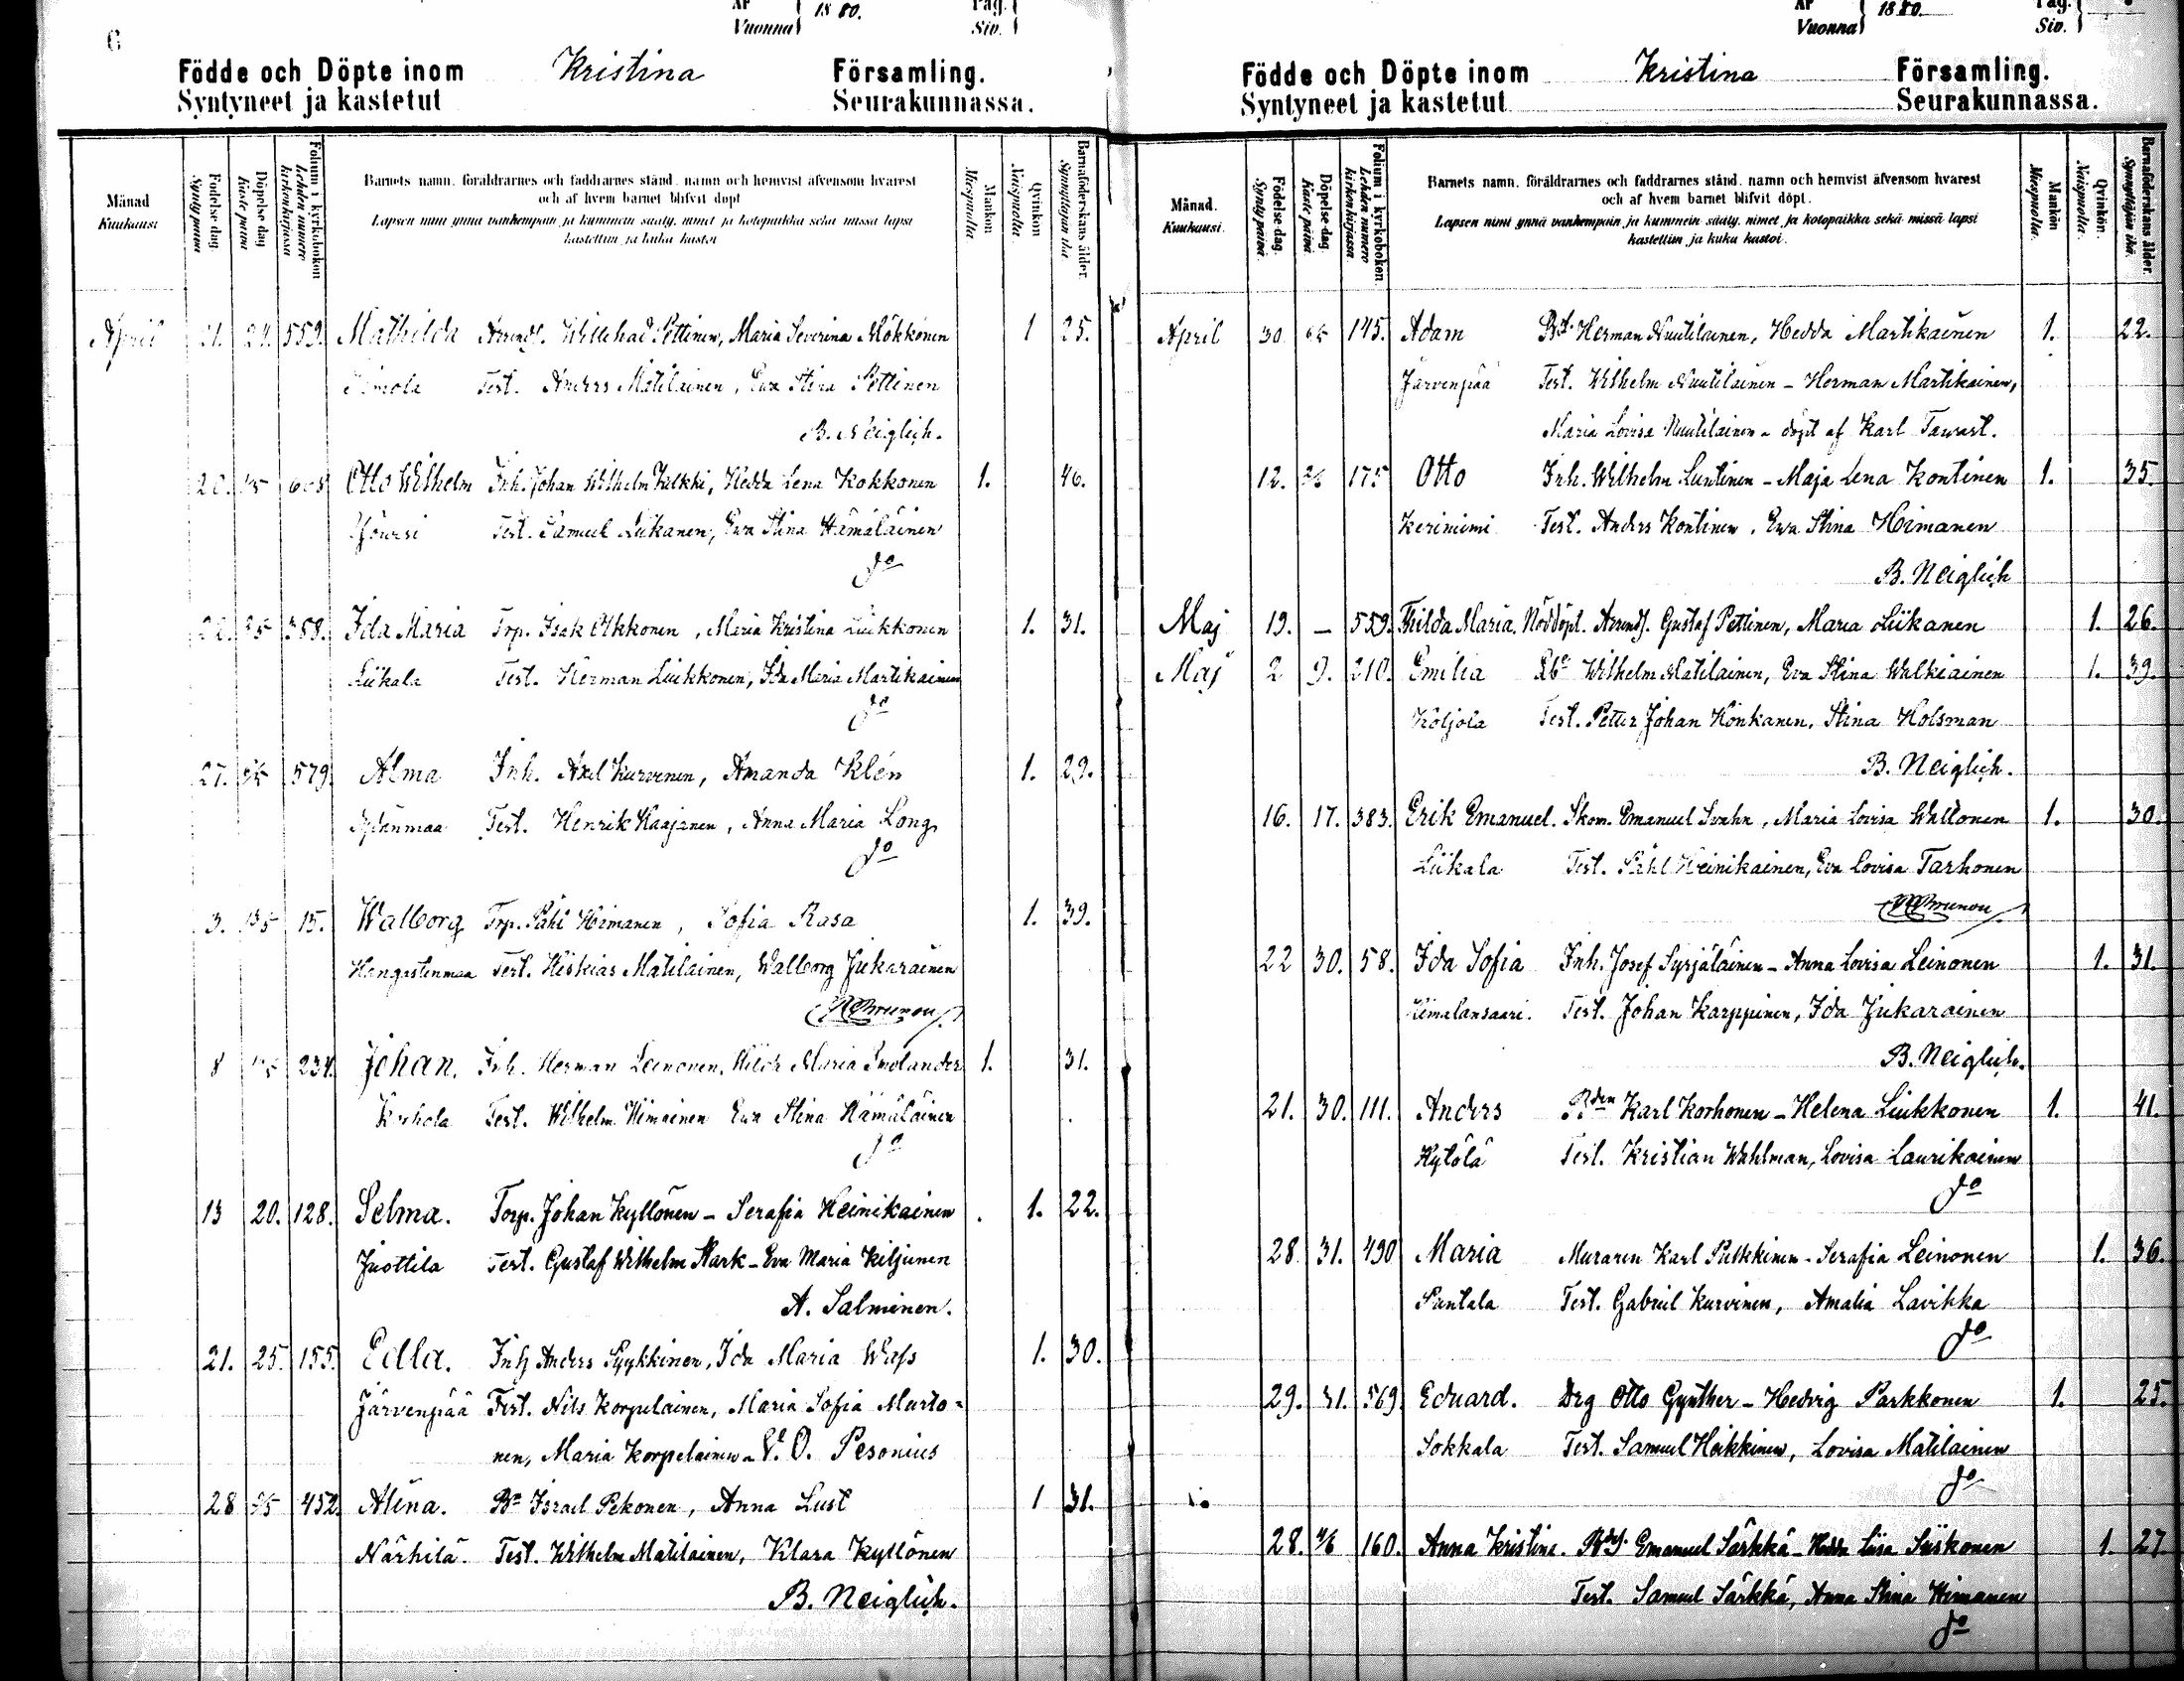 6
År 1880. Pag.
Vuonna Siv.
Födde och Döpte inom Kristina Församling.
Syntyneet ja kastetut Seurakunnassa.
Månad
Kuukausi
Födelse-dag.
Synty päivä
Döpelse dag
Kaste päivä
Folium i kyrkoboken
Lehden numero kirkonkirjassa
Barnets namn, föräldrarnes och faddrarnes stånd, namn och hemvist äfvensom hvarest
och af hvem barnet blifvit döpt
Lapsen nimi ynnä vanhempain ja kummein sääty, nimet ja kotopaikka sekä missä lapsi
kastettiin ja kuka kastoi
Mankön
Miespuolia
Qvinkön
Naispuolia
Barnaföderskans ålder.
Synnyttäjän ikä
April 21. 24. 559. Mathilda Arrend. Willehad Pettinen, Maria Severina Mökkönen 1 25.
Test. Anders Matilainen, Eva Stina Pettinen
B. Neiglich.
608 Otto Wilhelm Inh. Johan Wilhelm Kukki, Hedda Lena Kokkonen 1. 46.
Test. Samuel Liikanen, Eva Stina Hämäläinen
do
358. Ida Maria Torp. Isak Olkkonen, Maria Kristina Liukkonen 1. 31.
Liikala Test. Herman Liukkonen, Ida Maria Martikainen
do
27. 579. Alma Inh. Axel Kurvinen, Amanda Klén 1. 29.
Test. Henrik Kaajanen, Anna Maria Long
do
3. 15. Walborg Torp. Påhl Himanen, Sofia Rasa 1. 39.
Hangastenmaa Test. Hiskias Matilainen, Walborg Jukarainen
Brunou
8 234. Johan. Inh. Herman Leinonen, Hilda Maria Smolander 1. 31.
Korhola Test. Wilhelm Himainen Eva Stina Hämäläinen
do
13 20. 128. Selma. Torp. Johan Kyllönen - Serafia Heinikainen 1. 22.
Juottila Test. Gustaf Wilhelm Stark - Eva Maria Kiljunen
A. Salminen.
21. 25. 155. Edla. Inh Anders Pyykkinen, Ida Maria Wass 1. 30.
Järvenpää Test. Nils Korpelainen, Maria Sofia Murto=
nen, Maria Korpelainen - O. Pesonius
28 452. Alina. Israel Pekonen, Anna Lust 1 31.
Närhilä. Test. Wilhelm Matilainen, Klara Kyllönen
B. Neiglich.
År 1880. Pag.
Vuonna Siv.
Födde och Döpte inom Kristina Församling.
Syntyneet ja kastetut Seurakunnassa.
Månad.
Kuukausi.
Födelse-dag.
Synty päivä.
Döpelse-dag.
Kaste päivä.
Folium i kyrkoboken.
Lehden numero kirkonkirjassa.
Barnets namn, föräldrarnes och faddrarnes stånd, namn och hemvist äfvensom hvarest
och af hvem barnet blifvit döpt.
Lapsen nimi ynnä vanhempain ja kummein sääty, nimet ja kotopaikka sekä missä lapsi
kastettiin ja kuka kastoi.
Mankön
Miespuolia.
Qvinkön.
Naispuolia.
Barnaföderskans ålder.
Synnyttäjän ikä.
April 30 145. Adam Herman Nuutilainen, Hedda Martikainen 1. 22.
Järvenpää Test. Wilhelm Nuutilainen - Herman Martikainen,
Maria Lovisa Nuutilainen - döpt af Karl Tawast.
12. 175 Otto Inh. Wilhelm Luntinen - Maja Lena Kontinen 1. 35.
Keriniemi Test. Anders Kontinen, Eva Stina Himanen
B. Neiglich
Maj 19. - 559. Thilda Maria. Nöddöpt. Arrend. Gustaf Pettinen, Maria Liikanen 1. 26.
Maj 2 9. 210. Emilia Wilhelm Matilainen, Eva Stina Walkiainen 1. 39.
Koljola Test. Petter Johan Honkanen, Stina Holsman
B. Neiglich.
16. 17. 383. Erik Emanuel. Skom. Emanuel Svahn, Maria Lovisa Waltonen 1. 30.
Liikala Test. Påhl Heinikainen, Eva Lovisa Tarhonen
Brunou
22 30. 58. Ida Sofia Inh. Josef Syrjäläinen - Anna Lovisa Leinonen 1. 31.
Himalansaari. Test. Johan Karppinen, Ida Jukarainen
B. Neiglich.
21. 30. 111. Anders Bden Karl Korhonen - Helena Liukkonen 1. 41.
Kytölä Test. Kristian Wahlman, Lovisa Laurikainen
do
28. 31. 490 Maria Muraren Karl Pulkkinen - Serafia Leinonen 1. 36.
Puntala Test. Gabriel Kurvinen, Amalia Lavikka
do
29. 31. 569 Eduard. Drg Otto Gynther - Hedvig Parkkonen 1. 25.
Sokkala Test. Samuel Heikkinen, Lovisa Matilainen
do
28. 4/6 160. Anna Kristina. Emanuel Särkkä - Hedda Liisa Siiskonen 1. 27
Test. Samuel Särkkä, Anna Stina Himanen
do